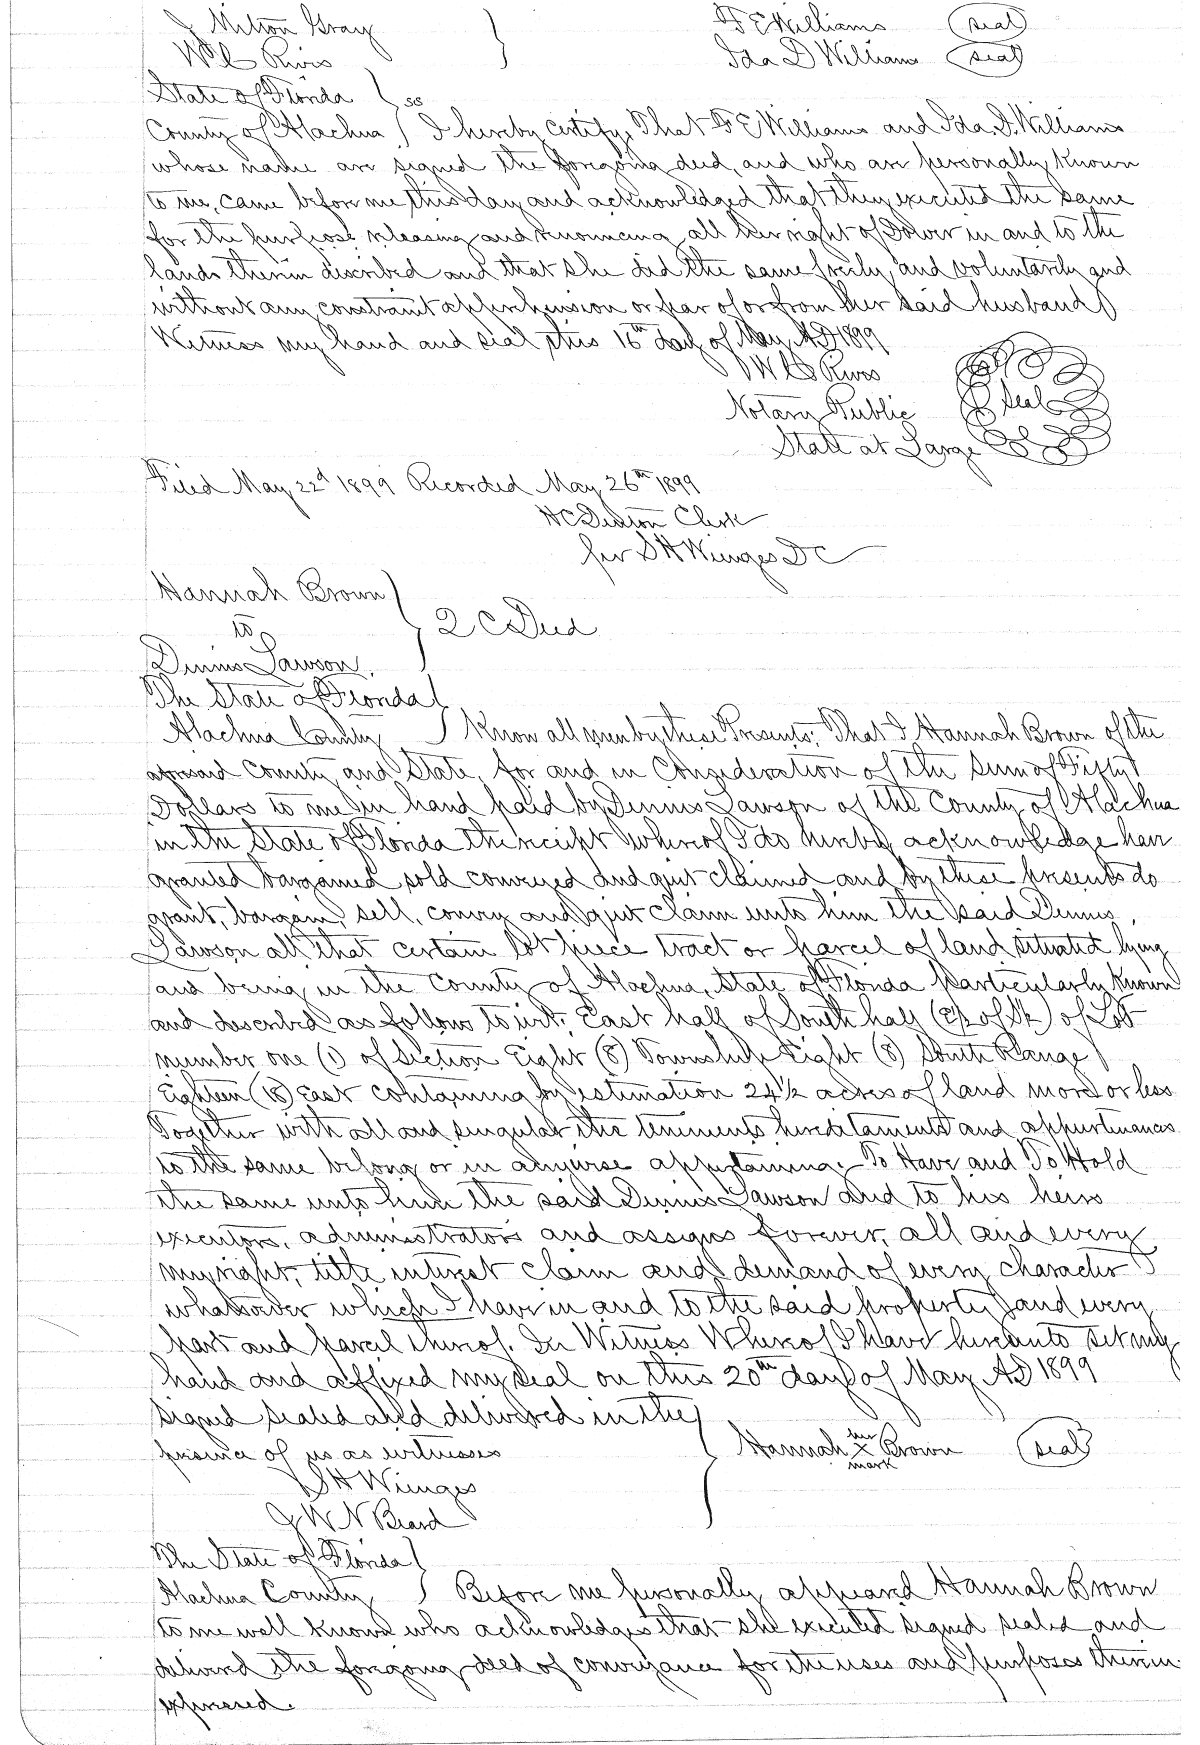 J Milton Gray } F E Williams (seal)
W C Rivis Ida D Williams (seal)
State of Florida } ss
County of Alachua } I hereby certify, That F E Williams and Ida. D. Williams
whose name are signed the foregoing deed, and who are personally known
to me, came before me this day and acknowledged that they executed the same
for the purpose releasing and renouncing all her right of Dower in and to the
lands therein described and that she did the same freely and voluntarily and
without any constraint apprehension or fear of or from her said husband
Witness my hand and seal this 16th day of May AD 1899
W C Rivis
Notary Public (seal)
State at Large
Filed May 22d 1899 Recorded May 26th 1899
H C Denton Clerk
per S H Wienges D C
Hannah Brown }
to } 2 C Deed
Dennis Lawson.
The State of Florida }
Alachua County } Know all men by these Presents; That I Hannah Brown of the
aforesaid County and State, for and in Consideration of the sum of Fifty
Dollars to me in hand paid by Dennis Lawson of the County of Alachua
in the State of Florida the receipt whereof I do hereby acknowledge have
granted bargained sold conveyed and quit claimed and by these presents do
grant, bargain, sell, convey and quit claim unto him the said Dennis
Lawson all that certain lot piece tract or parcel of land situated lying
and being in the County of Alachua, State of Florida particularly known
and described as follows to wit; East half of South half (E½ of S½) of Lot
number one (1) of Section Eight (8) Township Eight (8) South Range
Eighteen (18) East containing by estimation 24½ acres of land more or less
Together with all and singular the tenements hereditaments and appurtenances
to the same belong or in anywise appertaining. To Have and To Hold
the same unto him the said Dennis Lawson and to his heirs
executors, administrators and assigns forever, all and every
my right, title interest claim and demand of every character
whatsoever which I have in and to the said property and every
part and parcel thereof. In Witness Whereof I have hereunto set my
hand and affixed my seal on this 20th day of May AD 1899
signed sealed and delivered in the }
presence of us as witnesses } Hannah her x mark Brown (seal)
S H Wienges
J W N Beard
The State of Florida }
Alachua County } Before me personally appeared Hannah Brown
to me well known who acknowledges that she executed signed sealed and
delivered the foregoing deed of conveyance for the uses and purposes therein
expressed.